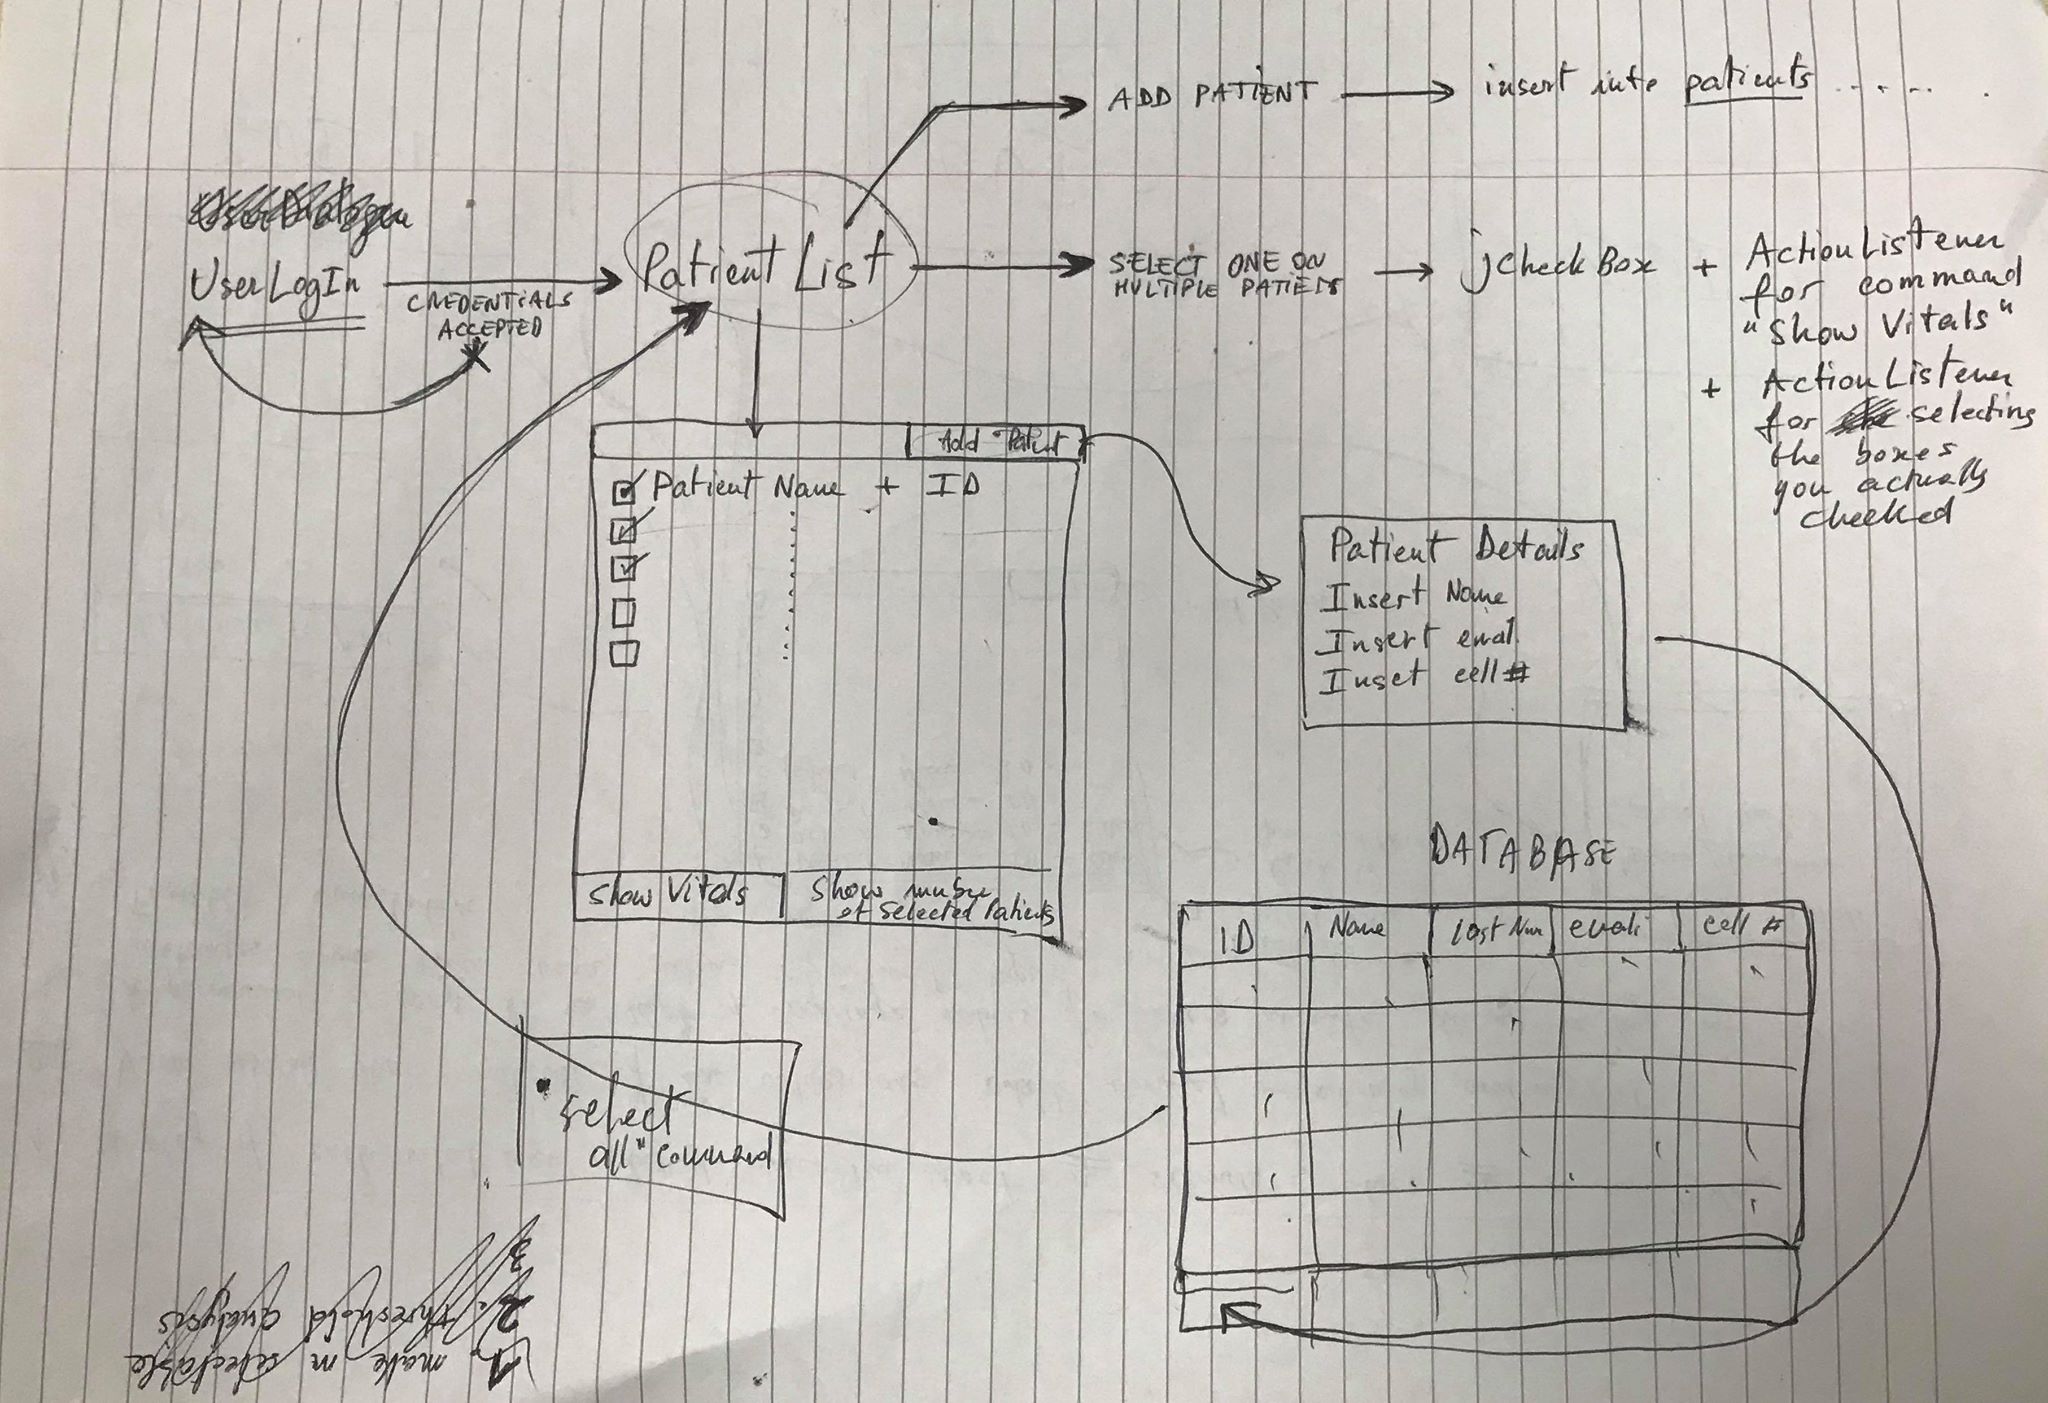 ADD PATIENT
insert into patients ..... .
UserLogIn
CREDENTIALS
ACCEPTED
Patient List
SELECT ONE OR
MULTIPLE PATIENTS
jCheckBox
+ ActionListener
for command
"Show Vitals"
+ ActionListener
for selecting
the boxes
you actually
checked
Add Patient
Patient Name + ID
Show Vitals
Show number
of Selected Patients
Patient Details
Insert Name
Insert email
Inset cell #
DATABASE
ID Name Last Nam email cell #
"select
all" command
1. make m selectable
2. threshold analysis
3